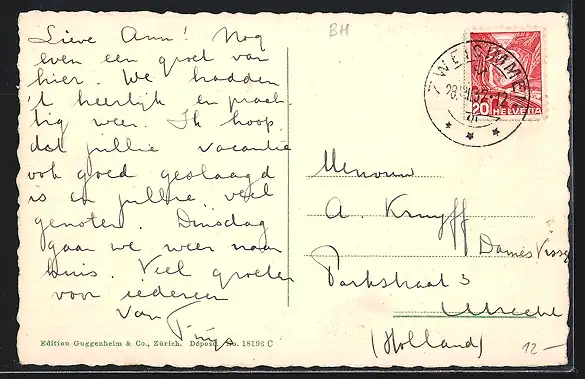 Lieve Ann! Nog
even een groet van
hier. We hadden
't heerlijk en prach-
tig weer. Ik hoop,
dat jullie vacantie
ook goed geslaagd
is en jullie veel
genoten. Dinsdag
gaan we weer naar
huis. Veel groeten
voor iedereen
van
Edition Guggenheim & Co., Zürich. Déposé. No. 18196 C
BH
ZWEISIMMEN
20 HELVETIA
Mevrouw
A. Kruyff
Parkstraat 3
Utrecht
(Holland)
12 —